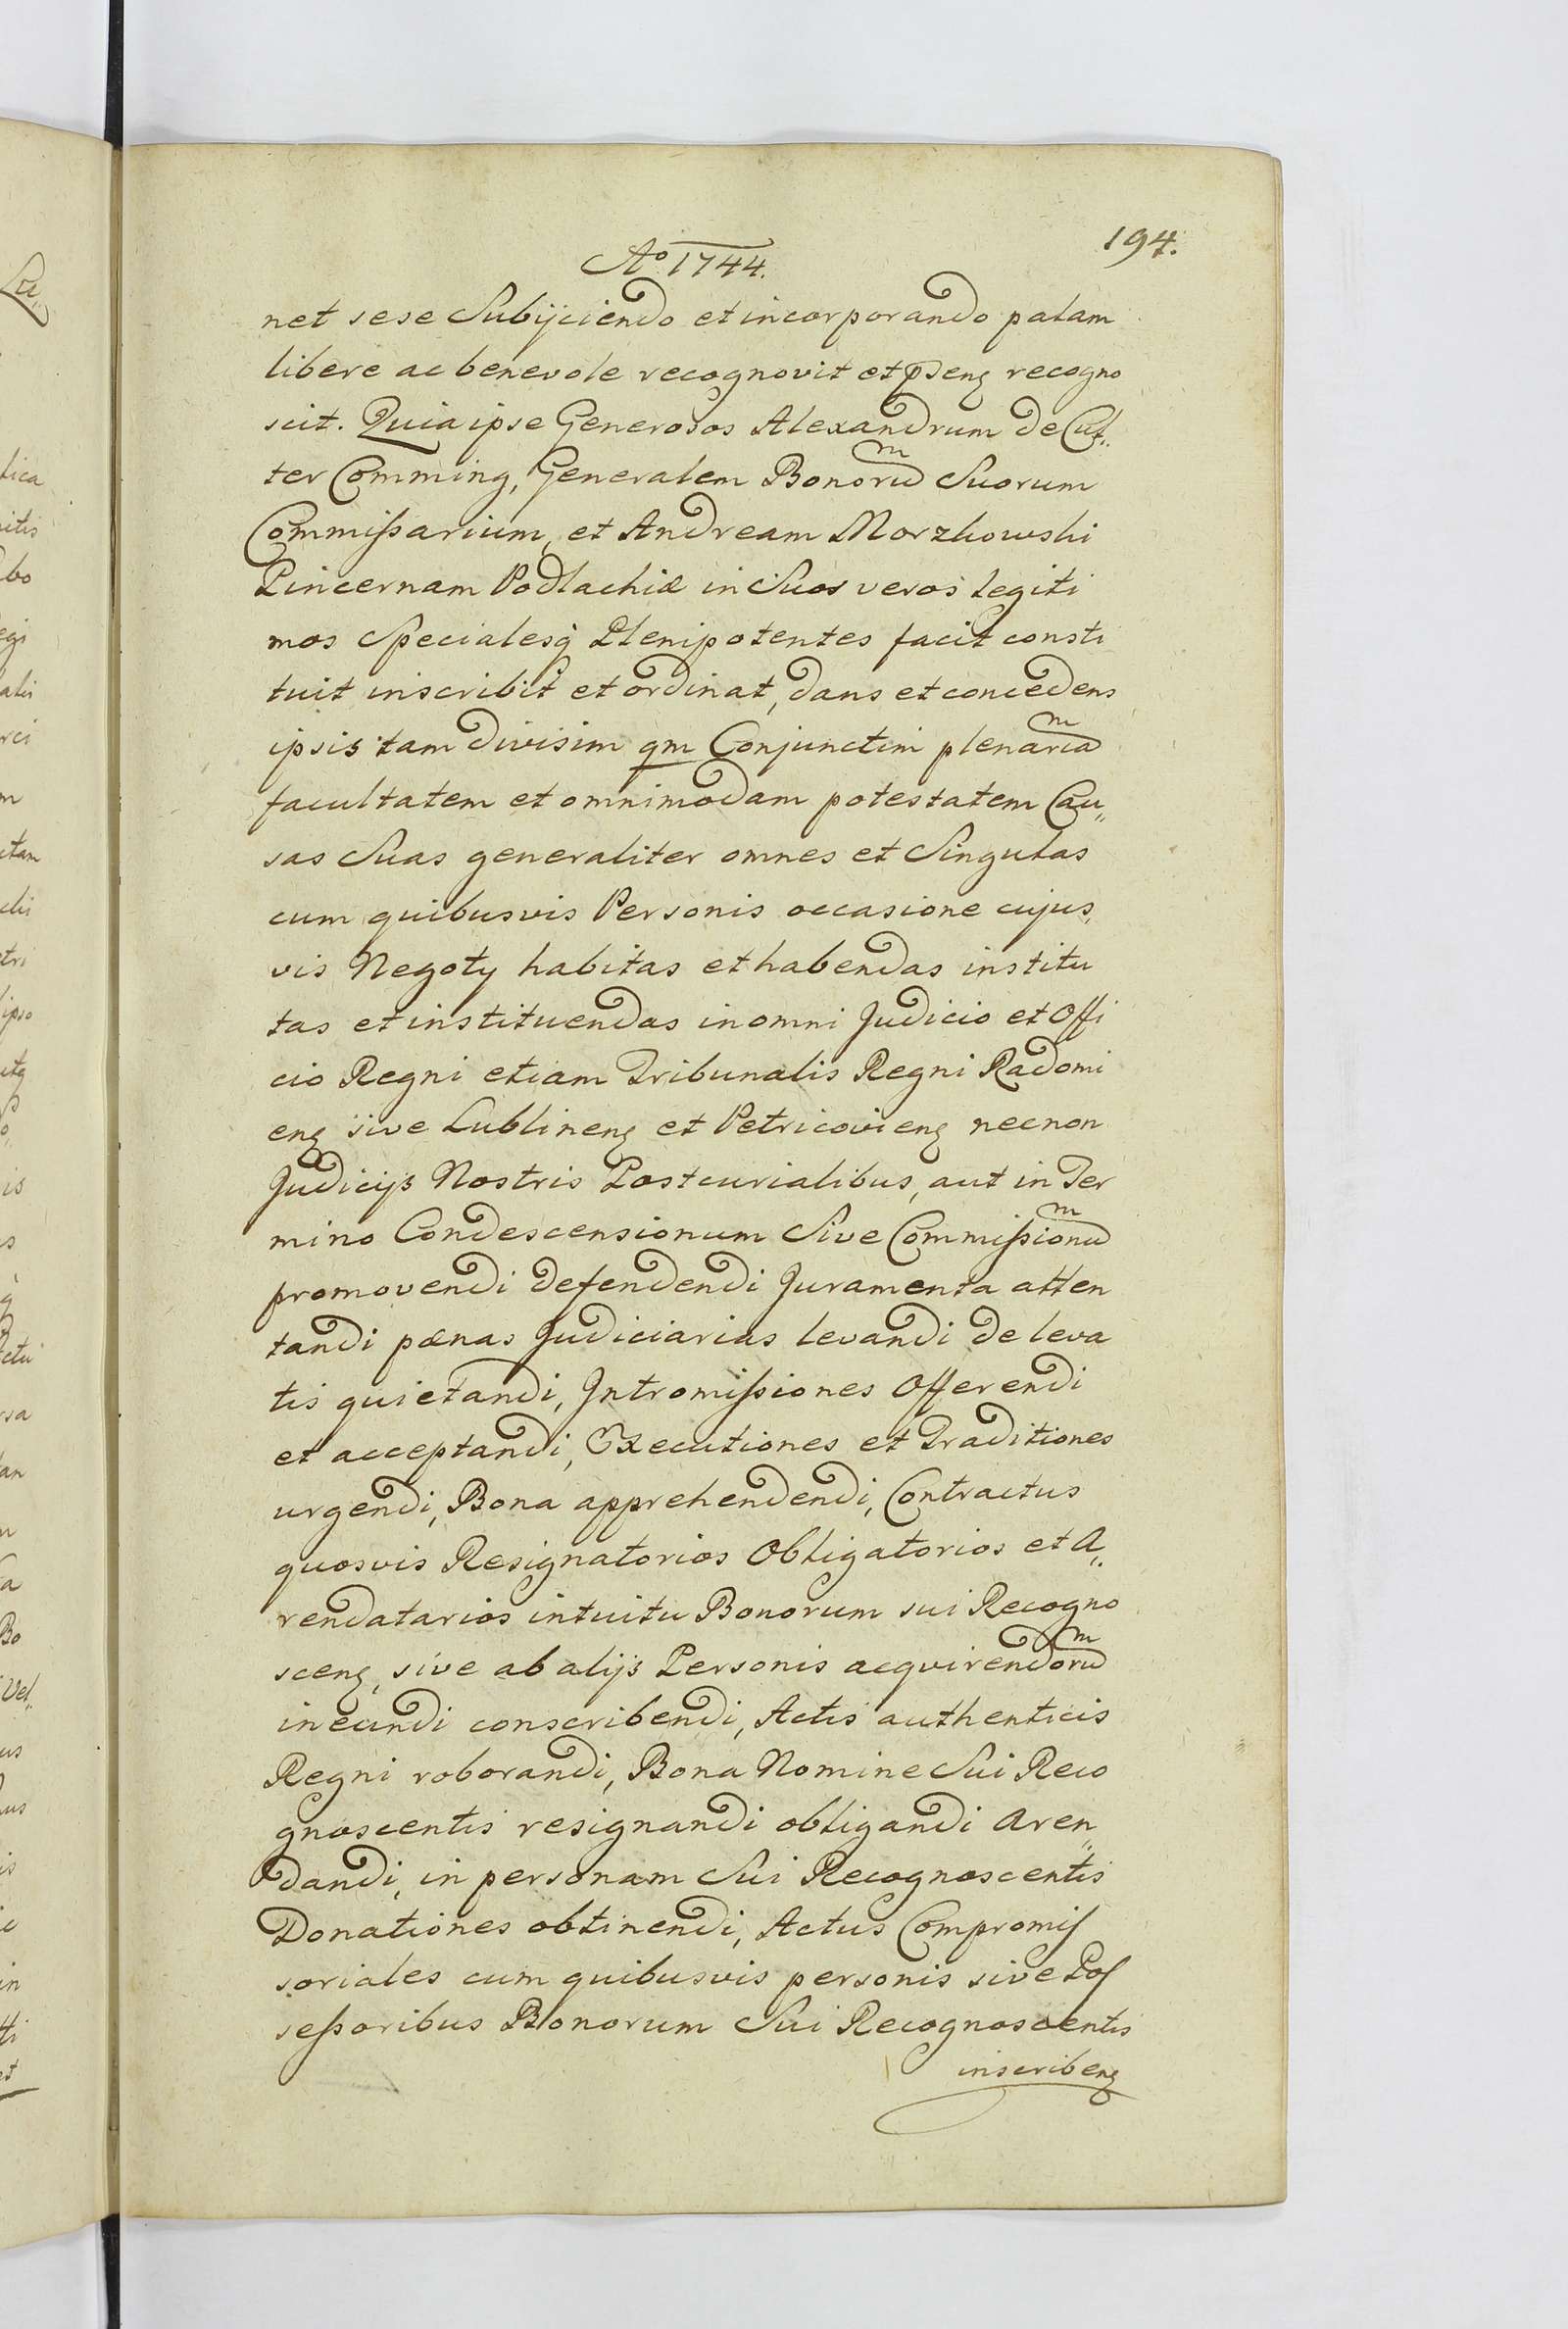 194.
Aº 1744.
net sese Subijciendo et incorporando palam
libere ac benevole recognovit et pñdenꝫ recogno
scit. Quia ipse Generosos Alexandrum de Cut„
ter Comming, Generalem Bonorũ Suorum
Commissarium, et Andream Morzkowski
Pincernam Podlachiæ in Suos veros legiti
mos Specialesq̀ Plenipotentes facit consti
tuit inscribit et ordinat, dans et concedens
ipsis tam divisim qm Conjunctim plenariã
facultatem et omnimodam potestatem Cau„
sas Suas generaliter omnes et Singulas
cum quibusvis Personis occasione cujus„
vis Negoty habitas et habendas institu
tas et instituendas in omni Judicio et Offi
cio Regni etiam Tribunalis Regni Radomi
enꝫ sive Lublinenꝫ et Petricovienꝫ necnon
Judicijs Nostris Postcurialibus, aut in Ter
mino Condescensionum Sive Commissionũ
promovendi defendendi Juramenta atten
tandi pænas Judiciarias levandi de leva
tis quietandi, Intromissiones Offerendi
et acceptandi, Executiones et Traditiones
urgendi, Bona apprehendendi, Contractus
quosvis Resignatorios Obligatorios et A„
rendatarios intuitu Bonorum sui Recogno
scenꝫ, sive ab alijs Personis acqvirendorũ
ineundi conscribendi, Actis authenticis
Regni roborandi, Bona Nomine Sui Reco
gnoscentis resignandi obligandi Aren„
dandi, in personam Sui Recognoscentis
Donationes obtinendi, Actus Compromis
soriales cum quibusvis personis sive Pos
sessoribus Bonorum Sui Recognoscentis
inscribenꝫ